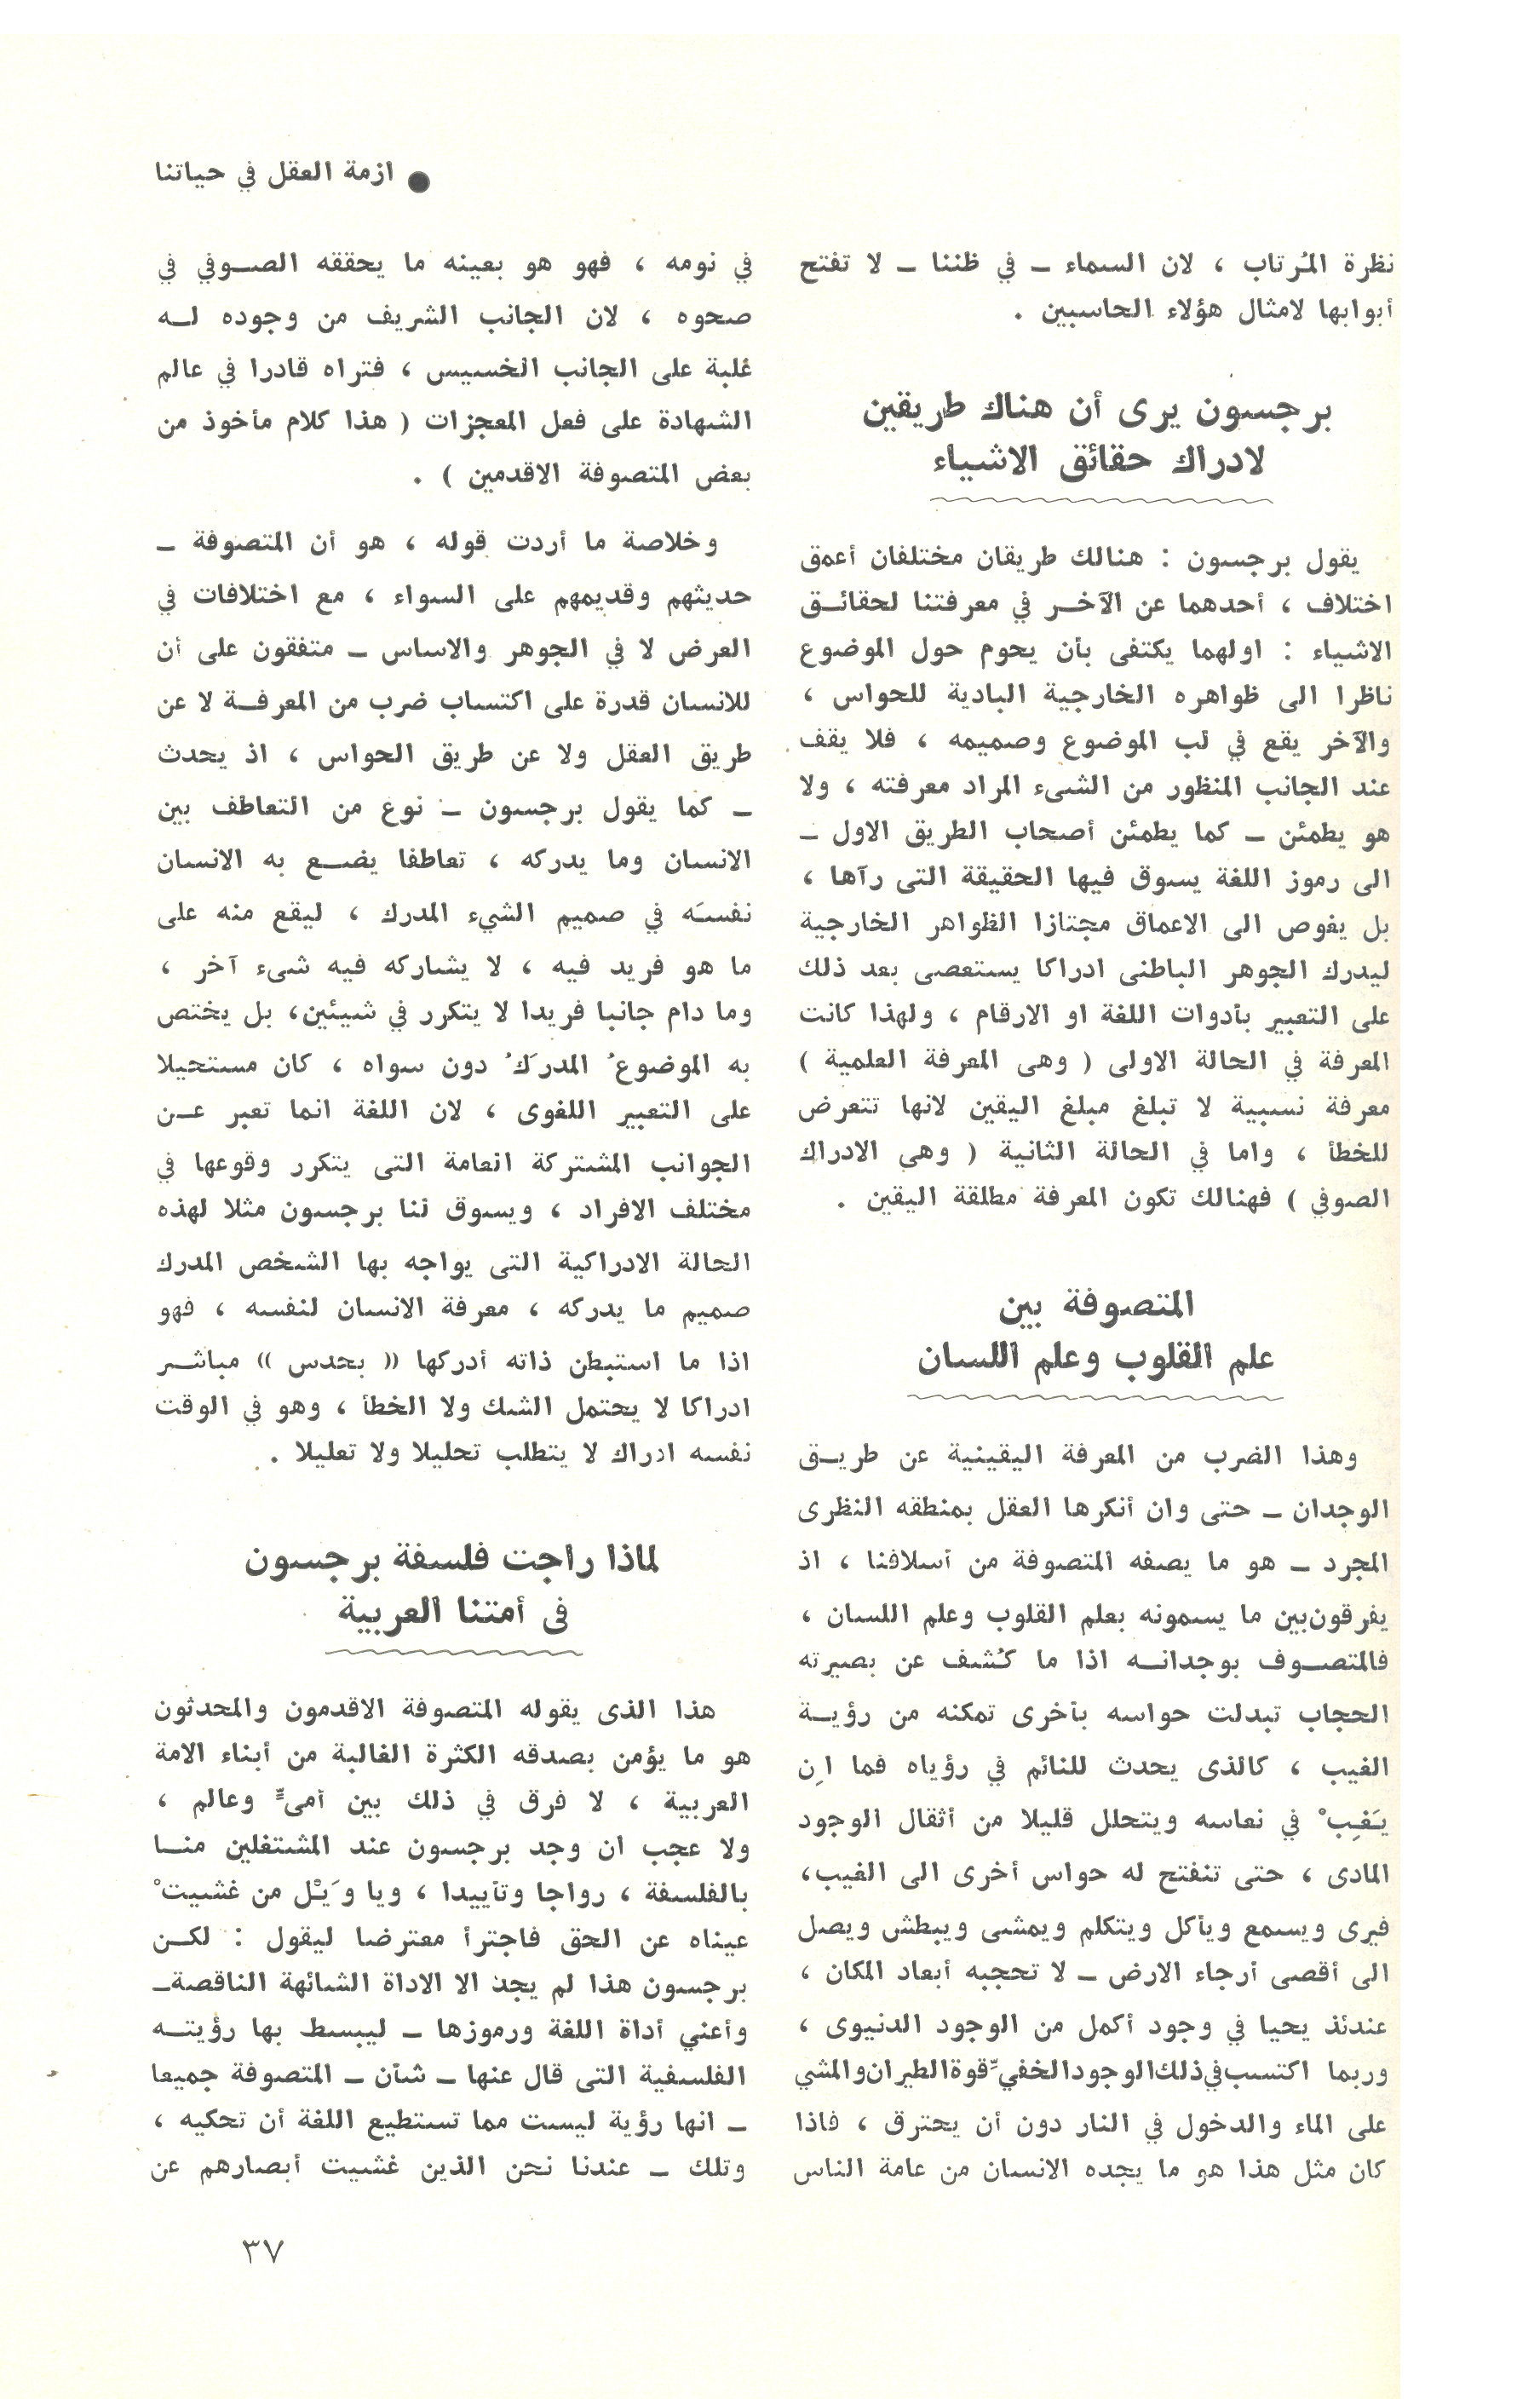 ● ازمة العقل في حياتنا
نظرة المُرتاب ، لان السماء ــ في ظننا ــ لا تفتح
أبوابها لامثال هؤلاء الحاسبين .
برجسون يرى أن هناك طريقين
لادراك حقائق الاشياء
يقول برجسون : هنالك طريقان مختلفان أعمق
اختلاف ، أحدهما عن الآخــر في معرفتنا لحقائــق
الاشياء : اولهما يكتفى بأن يحوم حول الموضوع
ناظرا الى ظواهره الخارجية البادية للحواس ،
والآخر يقع في لب الموضوع وصميمه ، فلا يقف
عند الجانب المنظور من الشىء المراد معرفته ، ولا
هو يطمئن ــ كما يطمئن أصحاب الطريق الاول ــ
الى رموز اللغة يسوق فيها الحقيقة التى رآها ،
بل يغوص الى الاعماق مجتازا الظواهر الخارجية
ليدرك الجوهر الباطنى ادراكا يستعصى بعد ذلك
على التعبير بأدوات اللغة او الارقام ، ولهذا كانت
المعرفة في الحالة الاولى ( وهى المعرفة العلمية )
معرفة نسبية لا تبلغ مبلغ اليقين لانها تتعرض
للخطأ ، واما في الحالة الثانية ( وهي الادراك
الصوفي ) فهنالك تكون المعرفة مطلقة اليقين .
المتصوفة بين
علم القلوب وعلم اللسان
وهذا الضرب من المعرفة اليقينية عن طريــق
الوجدان ــ حتى وان أنكرها العقل بمنطقه النظرى
المجرد ــ هو ما يصفه المتصوفة من أسلافنا ، اذ
يفرقون بين ما يسمونه بعلم القلوب وعلم اللسان ،
فالمتصــوف بوجدانــه اذا ما كُشف عن بصيرته
الحجاب تبدلت حواسه بأخرى تمكنه من رؤيــة
الغيب ، كالذى يحدث للنائم في رؤياه فما اِن
يَغِبْ في نعاسه ويتحلل قليلا من أثقال الوجود
المادى ، حتى تنفتح له حواس أخرى الى الغيب،
فيرى ويسمع ويأكل ويتكلم ويمشى ويبطش ويصل
الى أقصى أرجاء الارض ــ لا تحجبه أبعاد المكان ،
عندئذ يحيا في وجود أكمل من الوجود الدنيوى ،
وربما اكتسب في ذلك الوجود الخفيِّ قوة الطيران والمشي
على الماء والدخول في النار دون أن يحترق ، فاذا
كان مثل هذا هو ما يجده الانسان من عامة الناس
في نومه ، فهو هو بعينه ما يحققه الصــوفي في
صحوه ، لان الجانب الشريف من وجوده لــه
غلبة على الجانب الخسيس ، فتراه قادرا في عالم
الشهادة على فعل المعجزات ( هذا كلام مأخوذ من
بعض المتصوفة الاقدمين ) .
وخلاصة ما أردت قوله ، هو أن المتصوفة ــ
حديثهم وقديمهم على السواء ، مع اختلافات في
العرض لا في الجوهر والاساس ــ متفقون على أن
للانسان قدرة على اكتساب ضرب من المعرفــة لا عن
طريق العقل ولا عن طريق الحواس ، اذ يحدث
ــ كما يقول برجسون ــ نوع من التعاطف بين
الانسان وما يدركه ، تعاطفا يضــع به الانسان
نفسَه في صميم الشيء المدرك ، ليقع منه على
ما هو فريد فيه ، لا يشاركه فيه شىء آخر ،
وما دام جانبا فريدا لا يتكرر في شيئين، بل يختص
به الموضوعُ المدرَكُ دون سواه ، كان مستحيلا
على التعبير اللغوى ، لان اللغة انما تعبر عــن
الجوانب المشتركة العامة التى يتكرر وقوعها في
مختلف الافراد ، ويسوق لنا برجسون مثلا لهذه
الحالة الادراكية التى يواجه بها الشخص المدرك
صميم ما يدركه ، معرفة الانسان لنفسه ، فهو
اذا ما استبطن ذاته أدركها (( بحدس )) مباشــر
ادراكا لا يحتمل الشك ولا الخطأ ، وهو في الوقت
نفسه ادراك لا يتطلب تحليلا ولا تعليلا .
لماذا راجت فلسفة برجسون
فى أمتنا العربية
هذا الذى يقوله المتصوفة الاقدمون والمحدثون
هو ما يؤمن بصدقه الكثرة الغالبة من أبناء الامة
العربية ، لا فرق في ذلك بين أمىٍّ وعالم ،
ولا عجب ان وجد برجسون عند المشتغلين منــا
بالفلسفة ، رواجا وتأييدا ، ويا وَيْل من غشيتْ
عيناه عن الحق فاجترأ معترضا ليقول : لكــن
برجسون هذا لم يجد الا الاداة الشائهة الناقصةــ
وأعني أداة اللغة ورموزها ــ ليبسط بها رؤيتــه
الفلسفية التى قال عنها ــ شأن ــ المتصوفة جميعا
ــ انها رؤية ليست مما تستطيع اللغة أن تحكيه ،
وتلك ــ عندنا نحن الذين غشيت أبصارهم عن
٣٧